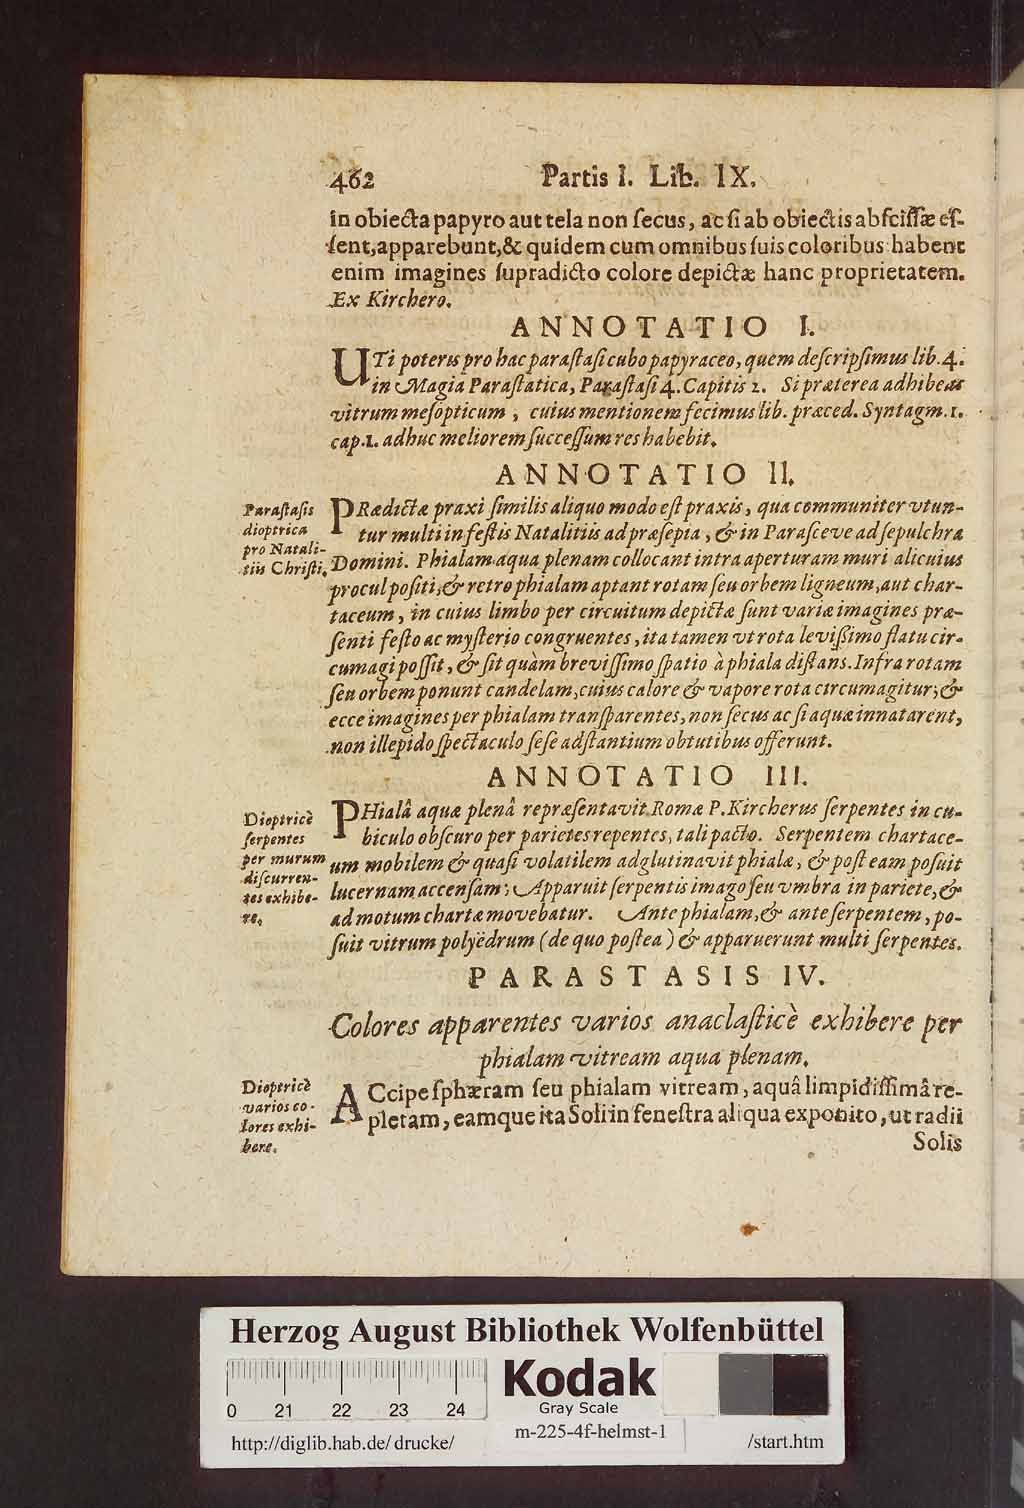 462 Partis I. Lib. IX.
in obiecta papyro aut tela non ſecus, ac ſi ab obiectis abſciſſæ eſ-
ſent, apparebunt, & quidem cum omnibus ſuis coloribus habent
enim imagines ſupradicto colore depictæ hanc proprietatem.
Ex Kirchero.
ANNOTATIO I.
UTi poteris pro hac paraſtaſi cubo papyraceo, quem deſcripſimus lib. 4.
in Magia Paraſtatica, Paraſtaſi 4. Capitis 2. Si præterea adhibeas
vitrum meſopticum, cuius mentionem fecimus lib. præced. Syntagm. 1.
cap. 1. adhuc meliorem ſucceſſum res habebit.
ANNOTATIO II.
Paraſtaſis
dioptrica
pro Natali-
tiis Chriſti.
PRædictæ praxi ſimilis aliquo modo eſt praxis, qua communiter vtun-
tur multi in feſtis Natalitiis ad præſepia, & in Paraſceve ad ſepulchra
Domini. Phialam aqua plenam collocant intra aperturam muri alicuius
procul poſiti, & retro phialam aptant rotam ſeu orbem ligneum, aut char-
taceum, in cuius limbo per circuitum depictæ ſunt variæ imagines præ-
ſenti feſto ac myſterio congruentes, ita tamen vt rota leviſſimo flatu cir-
cumagi poſſit, & ſit quàm breviſſimo ſpatio à phiala diſtans. Infra rotam
ſeu orbem ponunt candelam, cuius calore & vapore rota circumagitur; &
ecce imagines per phialam tranſparentes, non ſecus ac ſi aquæ innatarent,
non illepido ſpectaculo ſeſe adſtantium obtutibus offerunt.
ANNOTATIO III.
Dioptricè
ſerpentes
per murum
diſcurren-
tes exhibe-
re.
PHialâ aquæ plenâ repræſentavit Romæ P. Kircherus ſerpentes in cu-
biculo obſcuro per parietes repentes, tali pacto. Serpentem chartace-
um mobilem & quaſi volatilem adglutinavit phialæ, & poſt eam poſuit
lucernam accenſam; Apparuit ſerpentis imago ſeu vmbra in pariete, &
ad motum chartæ movebatur. Ante phialam, & ante ſerpentem, po-
ſuit vitrum polyëdrum (de quo poſtea) & apparuerunt multi ſerpentes.
PARASTASIS IV.
Colores apparentes varios anaclaſticè exhibere per
phialam vitream aqua plenam.
Dioptricè
varios co-
lores exhi-
bere.
ACcipe ſphæram ſeu phialam vitream, aquâ limpidiſſimâ re-
pletam, eamque ita Soli in feneſtra aliqua exponito, ut radii
Solis
Herzog August Bibliothek Wolfenbüttel
0 21 22 23 24
Kodak
Gray Scale
http://diglib.hab.de/drucke/ m-225-4f-helmst-1 /start.htm